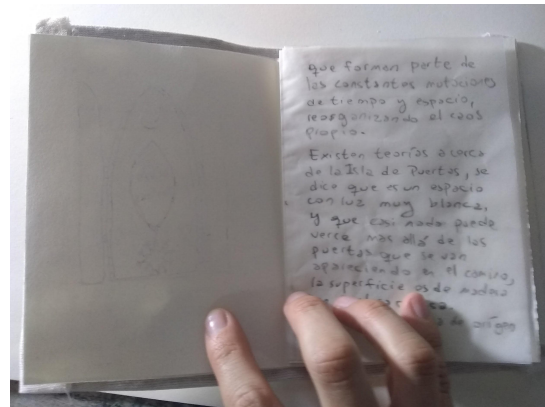 que formen parte de
las constantes mutaciones
de tiempo y espacio,
reorganizando el caos
propio.
Existen teorías acerca
de la Isla de Puertas, se
dice que es un espacio
con luz muy blanca,
y que casi nada puede
verce mas allá de las
puertas que se van
apareciendo en el camino,
la superficie es de madera
de origen